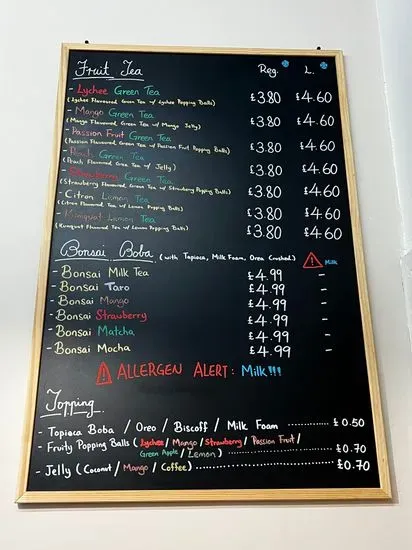 Fruit Tea Reg. L.
- Lychee Green Tea £3.80 £4.60
(Lychee Flavoured Green Tea w/ Lychee Popping Balls)
- Mango Green Tea £3.80 £4.60
(Mango Flavoured Green Tea w/ Mango Jelly)
- Passion Fruit Green Tea £3.80 £4.60
(Passion Flavoured Green Tea w/ Passion Fruit Popping Balls)
- Peach Green Tea £3.80 £4.60
(Peach Flavoured Green Tea w/ Jelly)
- Strawberry Green Tea £3.80 £4.60
(Strawberry Flavoured Green Tea w/ Strawberry Popping Balls)
- Citron Lemon Tea £3.80 £4.60
(Citron Flavoured Tea w/ Lemon Popping Balls)
- Kumquat Lemon Tea £3.80 £4.60
(Kumquat Flavoured Tea w/ Lemon Popping Balls)
Bonsai Boba (with Tapioca, Milk Foam, Oreo Crushed) Milk
- Bonsai Milk Tea £4.99 -
- Bonsai Taro £4.99 -
- Bonsai Mango £4.99 -
- Bonsai Strawberry £4.99 -
- Bonsai Matcha £4.99 -
- Bonsai Mocha £4.99 -
ALLERGEN ALERT: Milk!!!
Topping
- Tapioca Boba / Oreo / Biscoff / Milk Foam ............ £0.50
- Fruity Popping Balls (Lychee / Mango / Strawberry / Passion Fruit /
Green Apple / Lemon) .................... £0.70
- Jelly (Coconut / Mango / Coffee) .............................. £0.70